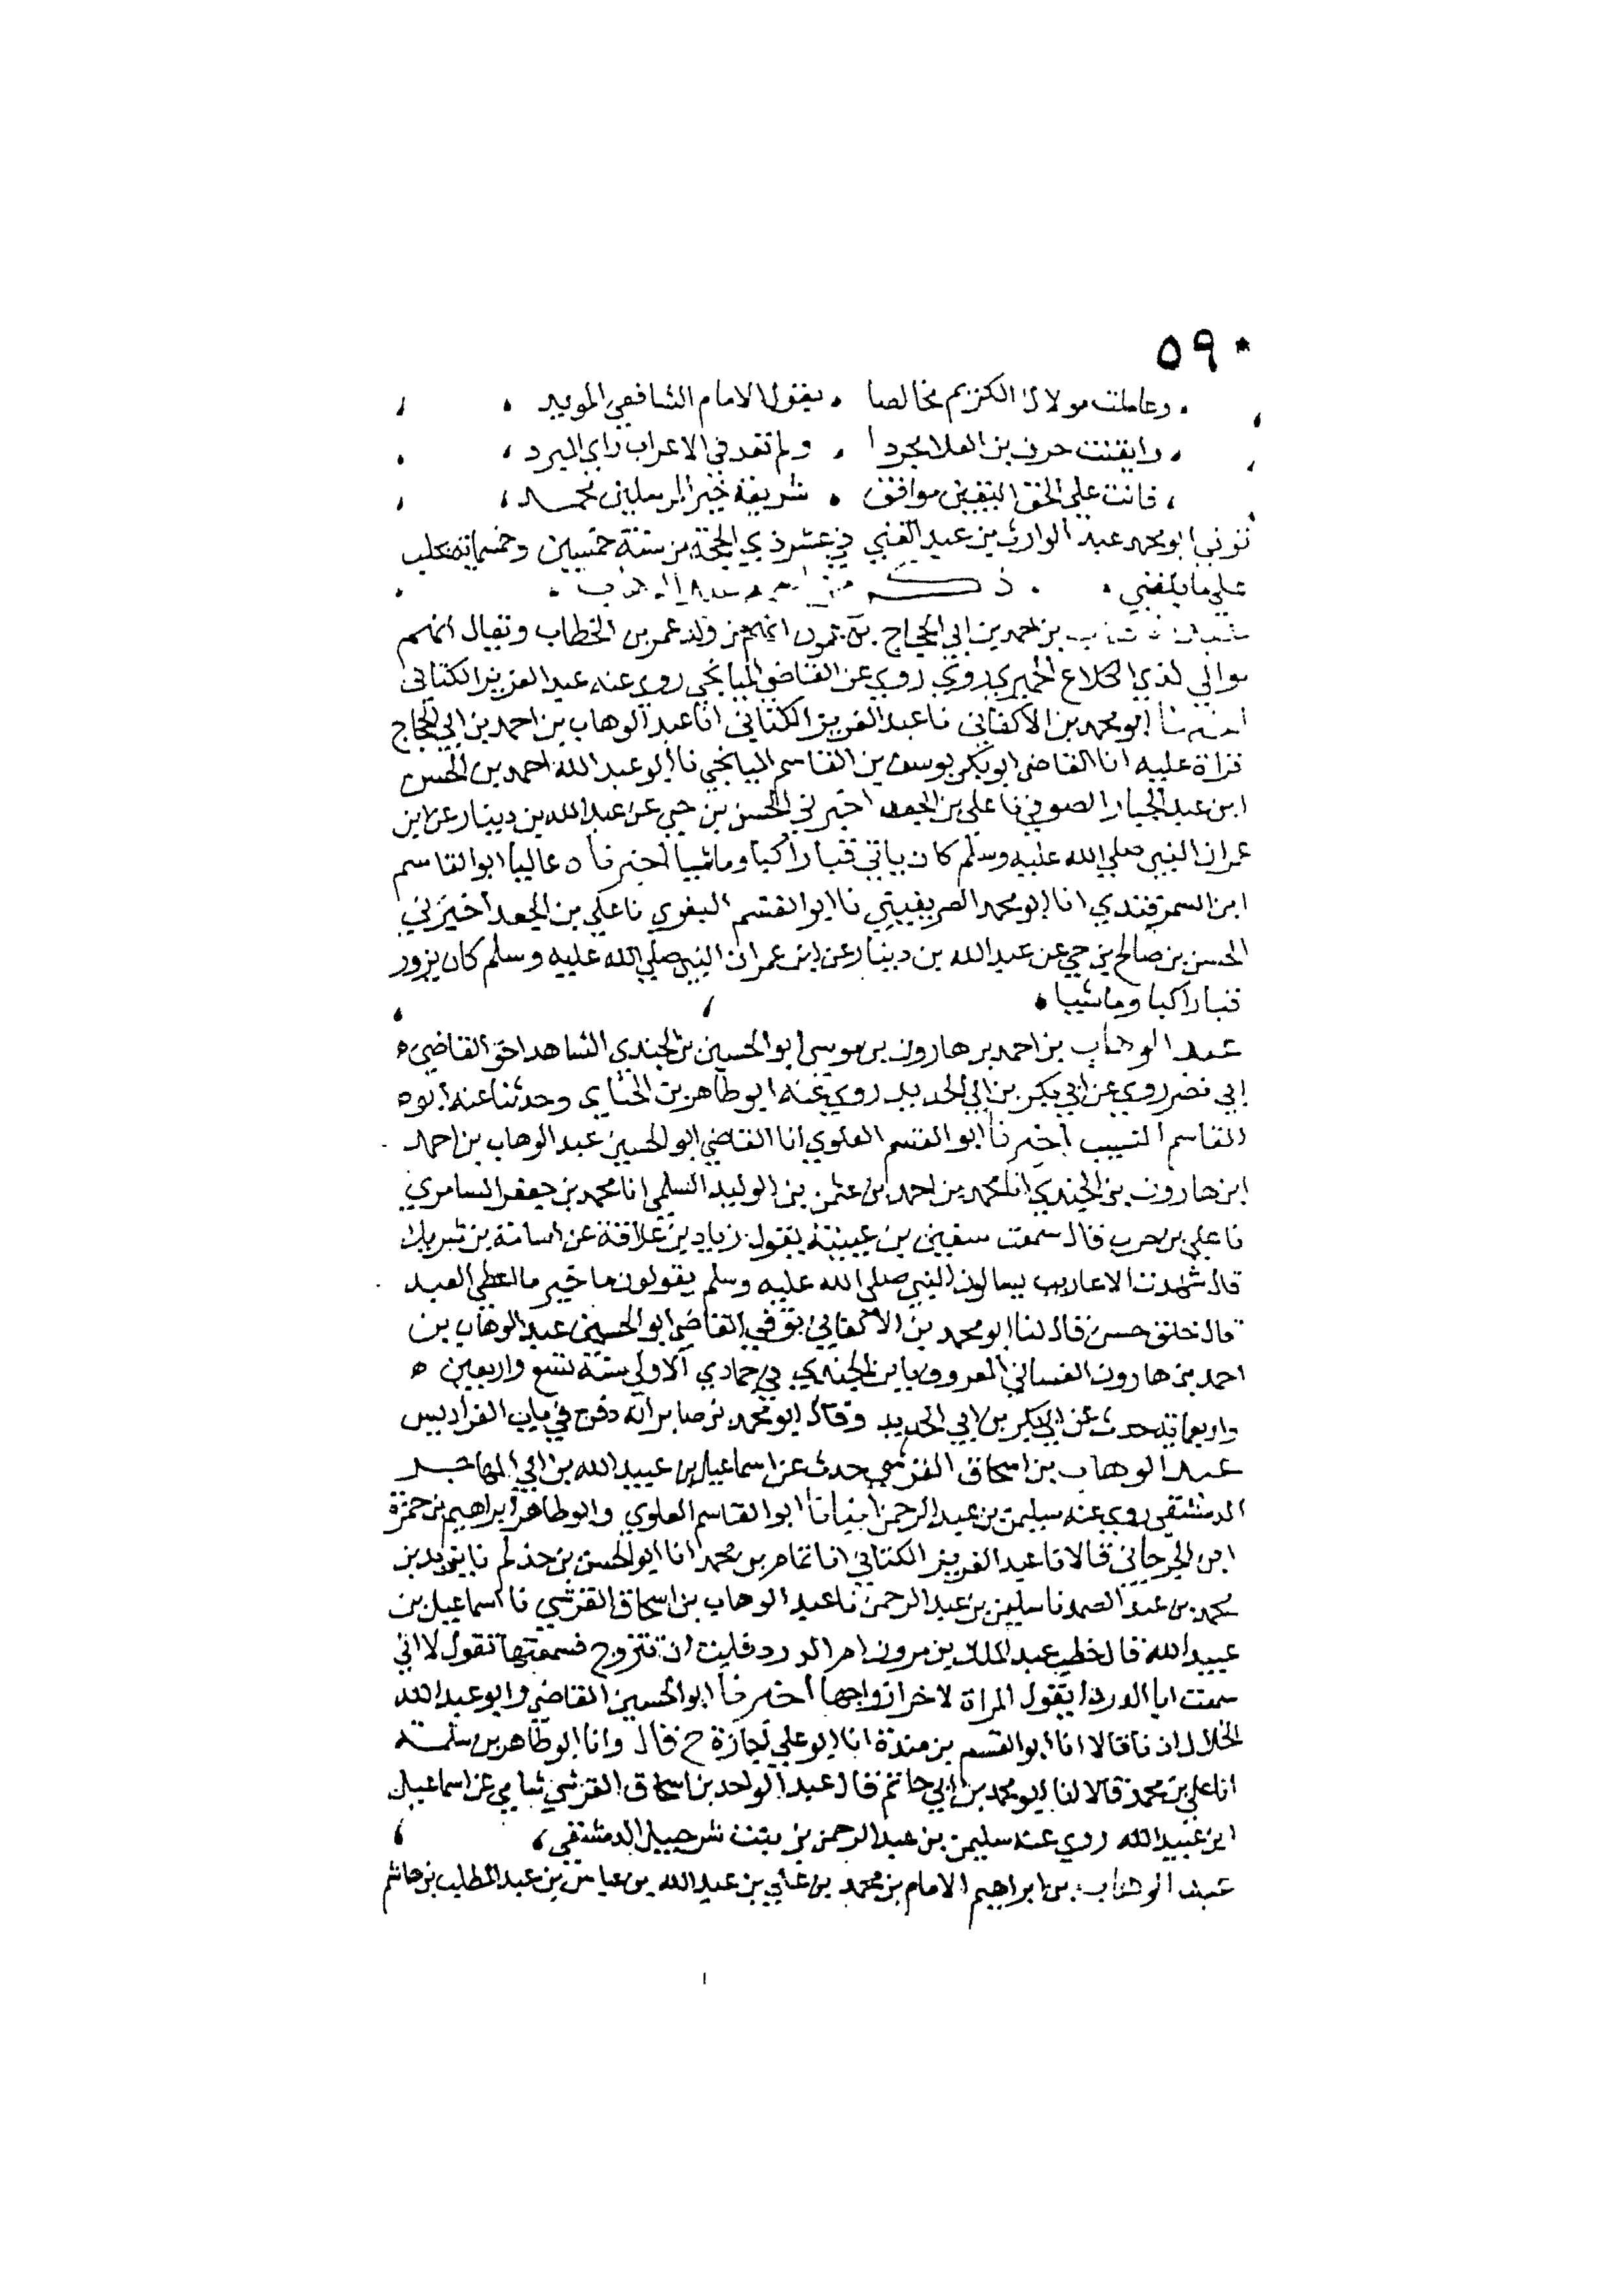 ٥٩٠
وعاملت مولاك الكريم مخالصا . بقول الامام الشافعي المويد
وايقنت حرف بن العلا مجردا . ولم تعد في الاعراب راي المبرد
فانت علي الحق اليقين موافق . شريعة خير المرسلين محمد
توفي ابو محمد عبد الوارث بن عبد الغني في عشر ذي الحجة من سنة خمسين وخمسمائة بحلب
علي ما بلغني . ذكر من اسمه عبد الوهاب
عبد الوهاب بن احمد بن ابي الحجاج انهم من ولد عمر بن الخطاب ويقال انهم
موالي لذي الكلاع الحميري روي عن القاضي الميانجي روي عنه عبد العزيز الكتاني
ابو محمد بن الاكفاني نا عبد العزيز الكتاني انا عبد الوهاب بن احمد بن ابي الحجاج
قراة عليه انا القاضي ابو بكر يوسف بن القاسم الميانجي نا ابو عبد الله احمد بن الحسن
ابن عبد الجبار الصوفي نا علي بن الجعد اخبرني الحسن بن حي عن عبد الله بن دينار عن ابن
عمر ان النبي صلي الله عليه وسلم كان ياتي قبا راكبا وماشيا اخبرناه عاليا ابو القاسم
ابن السمرقندي انا ابو محمد الصريفيني نا ابو القسم البغوي نا علي بن الجعد اخبرني
الحسن بن صالح بن حي عن عبد الله بن دينار عن ابن عمر ان النبي صلي الله عليه وسلم كان يزور
قبا راكبا وماشيا
عبد الوهاب بن احمد بن هارون بن موسي ابو الحسين بن الجندي الشاهد اخو القاضي
ابي نصر روي عن ابي بكر بن ابي الحديد روي عنه ابو طاهر بن الحنائي وحدثنا عنه ابو
القاسم النسيب اخبرنا ابو القسم العلوي انا القاضي ابو الحسين عبد الوهاب بن احمد
ابن هارون بن الجندي انا محمد بن احمد بن عثمن بن الوليد السلمي انا محمد بن جعفر السامري
نا علي بن حرب قال سمعت سفين بن عيينة يقول زياد بن علاقة عن اسامة بن شريك
قال شهدت الاعاريب يسالون النبي صلي الله عليه وسلم يقولون ما خير ما اعطي العبد
قال خلق حسن قال لنا ابو محمد بن الاكفاني توفي القاضي ابو الحسين عبد الوهاب بن
احمد بن هارون الغساني المعروف بابن الجندي في جمادي الاولي سنة تسع واربعين
واربعمائة حدث عن ابي بكر بن ابي الحديد وقال ابو محمد بن صابر انه دفن في باب الفراديس
عبد الوهاب بن اسحاق القرشي حدث عن اسماعيل بن عبيد الله بن ابي المهاجر
الدمشقي روي عنه سليمن بن عبد الرحمن انبانا ابو القاسم العلوي وابو طاهر ابراهيم بن حمزة
ابن الجرجاني قالا نا عبد العزيز الكتاني انا تمام بن محمد انا ابو الحسن بن حذلم نا يزيد بن
محمد بن عبد الصمد نا سليمن بن عبد الرحمن نا عبد الوهاب بن اسحاق القرشي نا اسماعيل بن
عبيد الله قال خطب عبد الملك بن مروان ام الدردا فابت ان تتزوج فسمعتها تقول لا اني
سمعت ابا الدردا يقول المراة لاخر ازواجها اخبرنا ابو الحسين القاضي وابو عبد الله
الخلال اذنا قالا انا ابو القسم بن مندة انا ابو علي اجازة ح قال وانا ابو طاهر بن سلمة
انا علي بن محمد قالا لنا ابو محمد بن ابي حاتم قال عبد الواحد بن اسحاق القرشي شامي عن اسماعيل
ابن عبيد الله روي عنه سليمن بن عبد الرحمن بن بنت شرحبيل الدمشقي
عبد الوهاب بن ابراهيم الامام بن محمد بن علي بن عبد الله بن عباس بن عبد المطلب بن هاشم